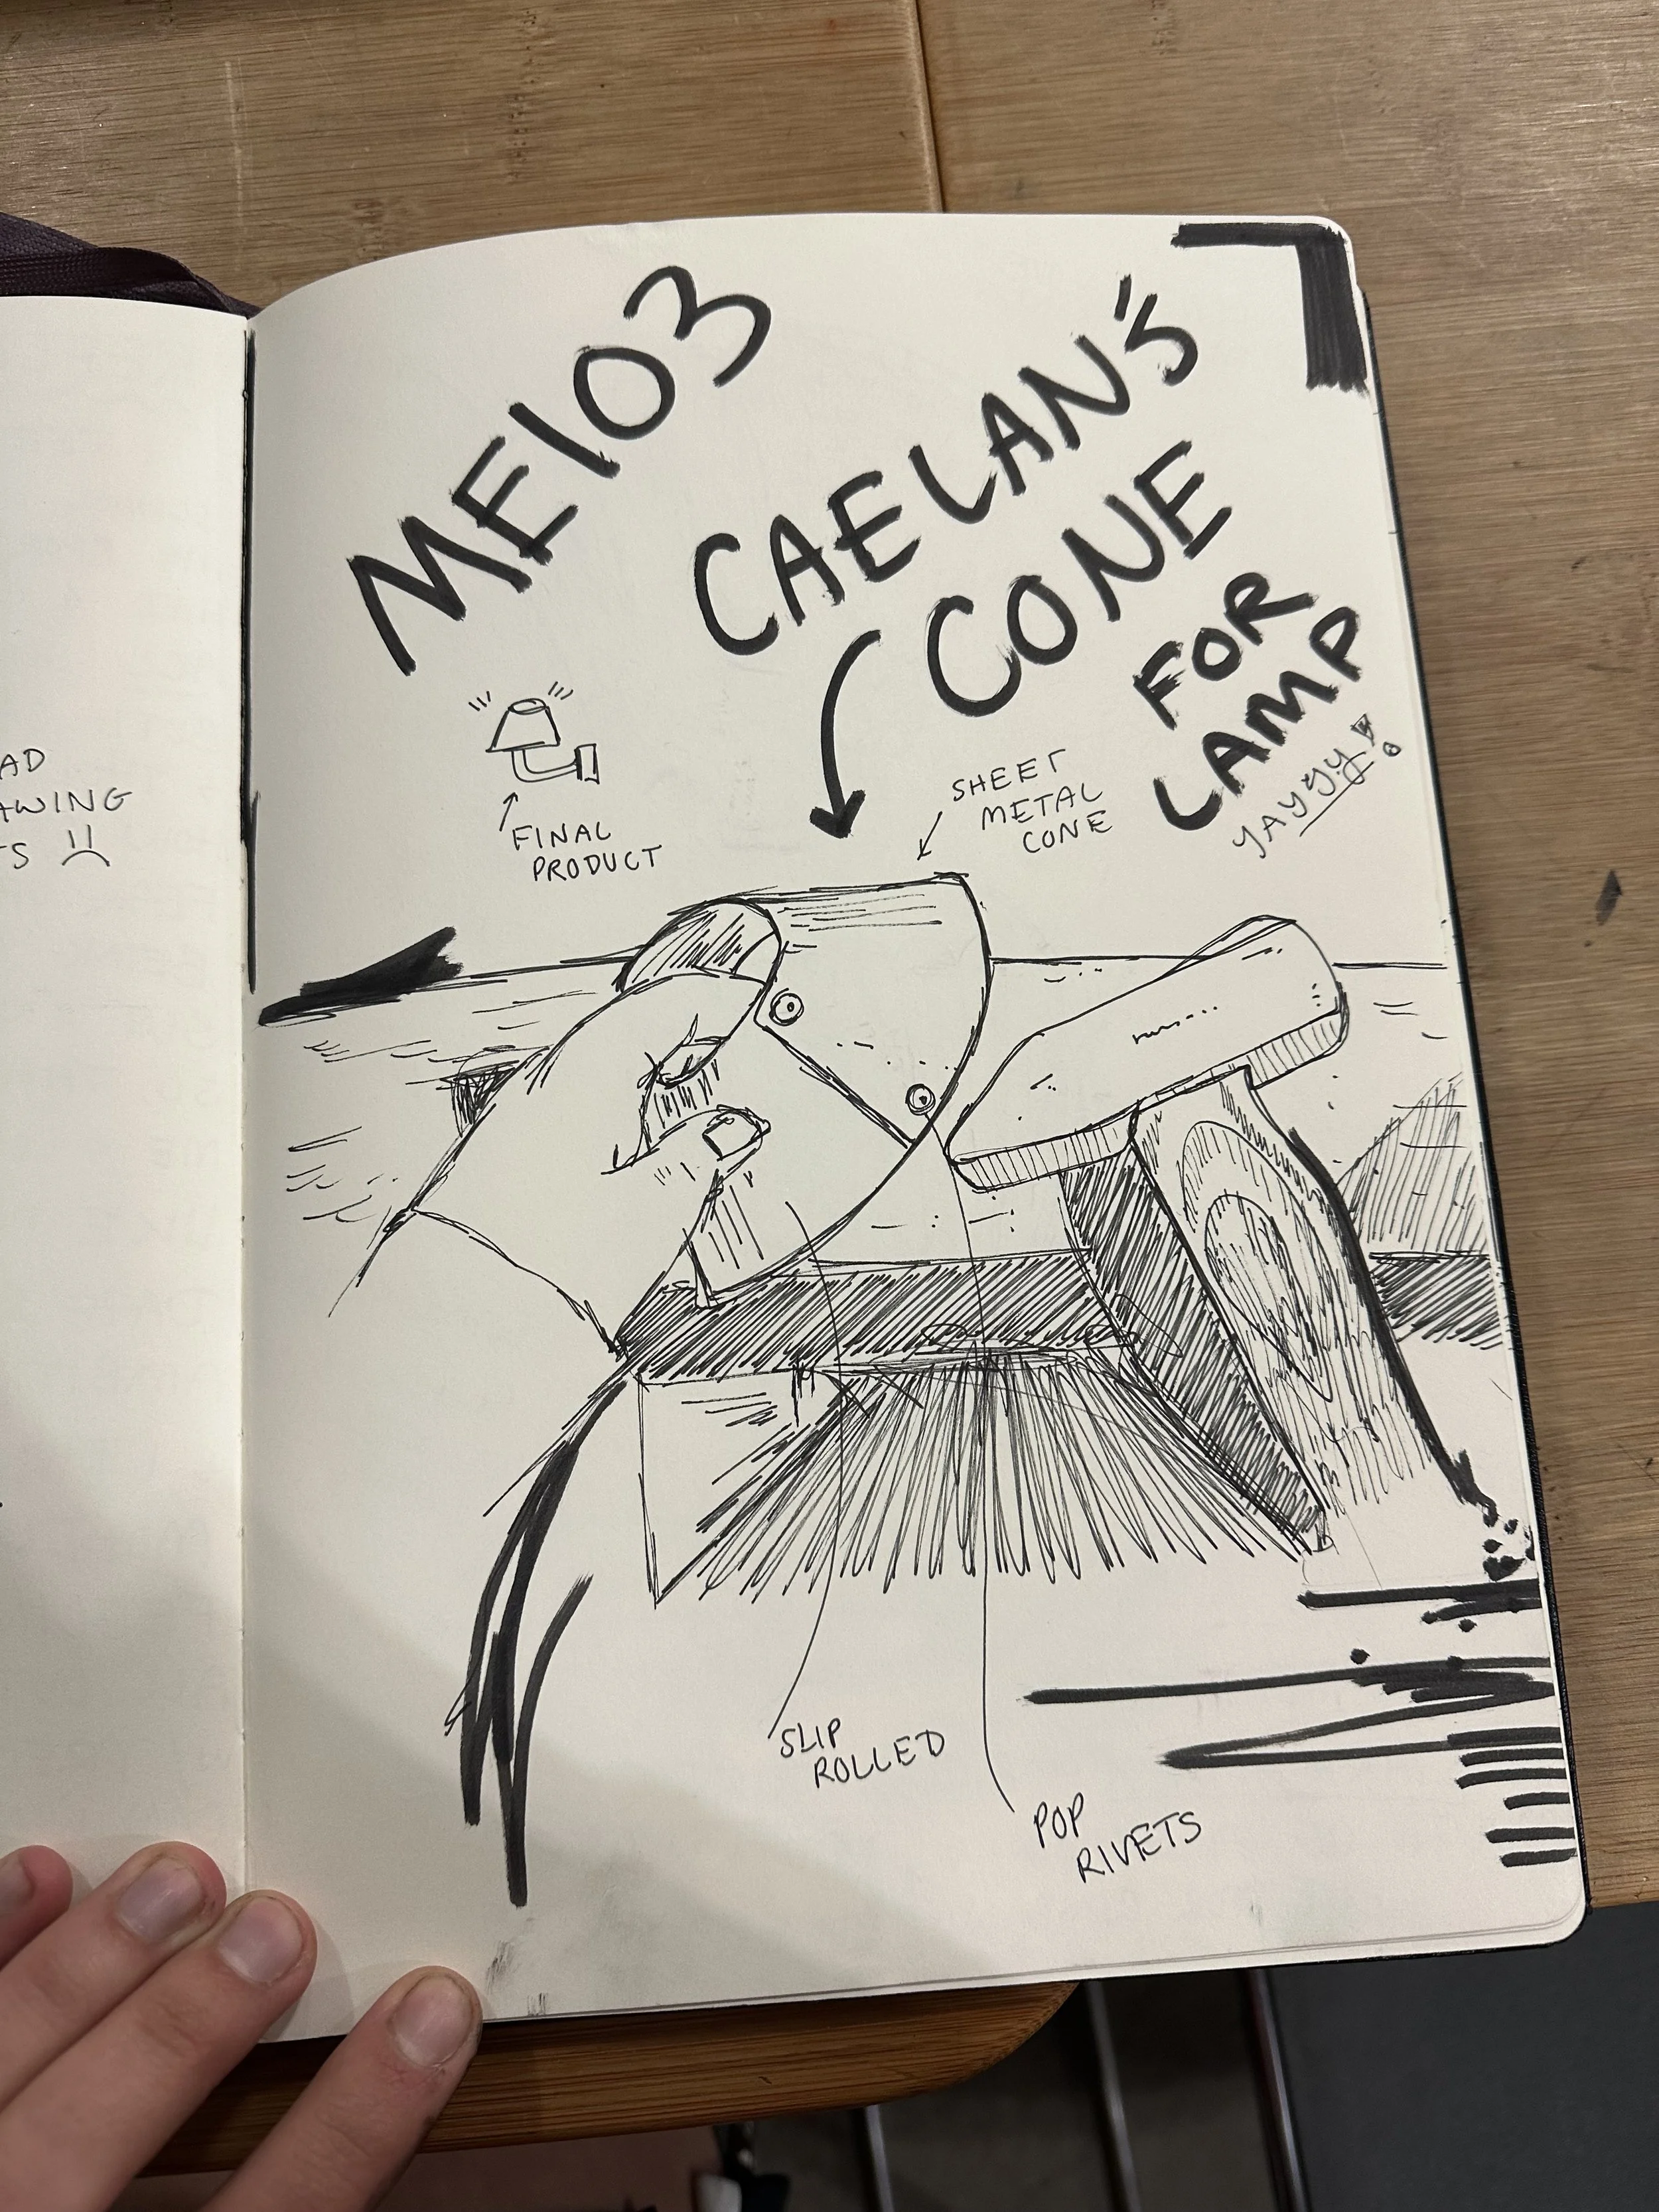 ME103
CAELAN'S
CONE
FOR
LAMP
YAYYYY!
SHEET
METAL
CONE
FINAL
PRODUCT
AD
AWING
TS
SLIP
ROLLED
POP
RIVETS